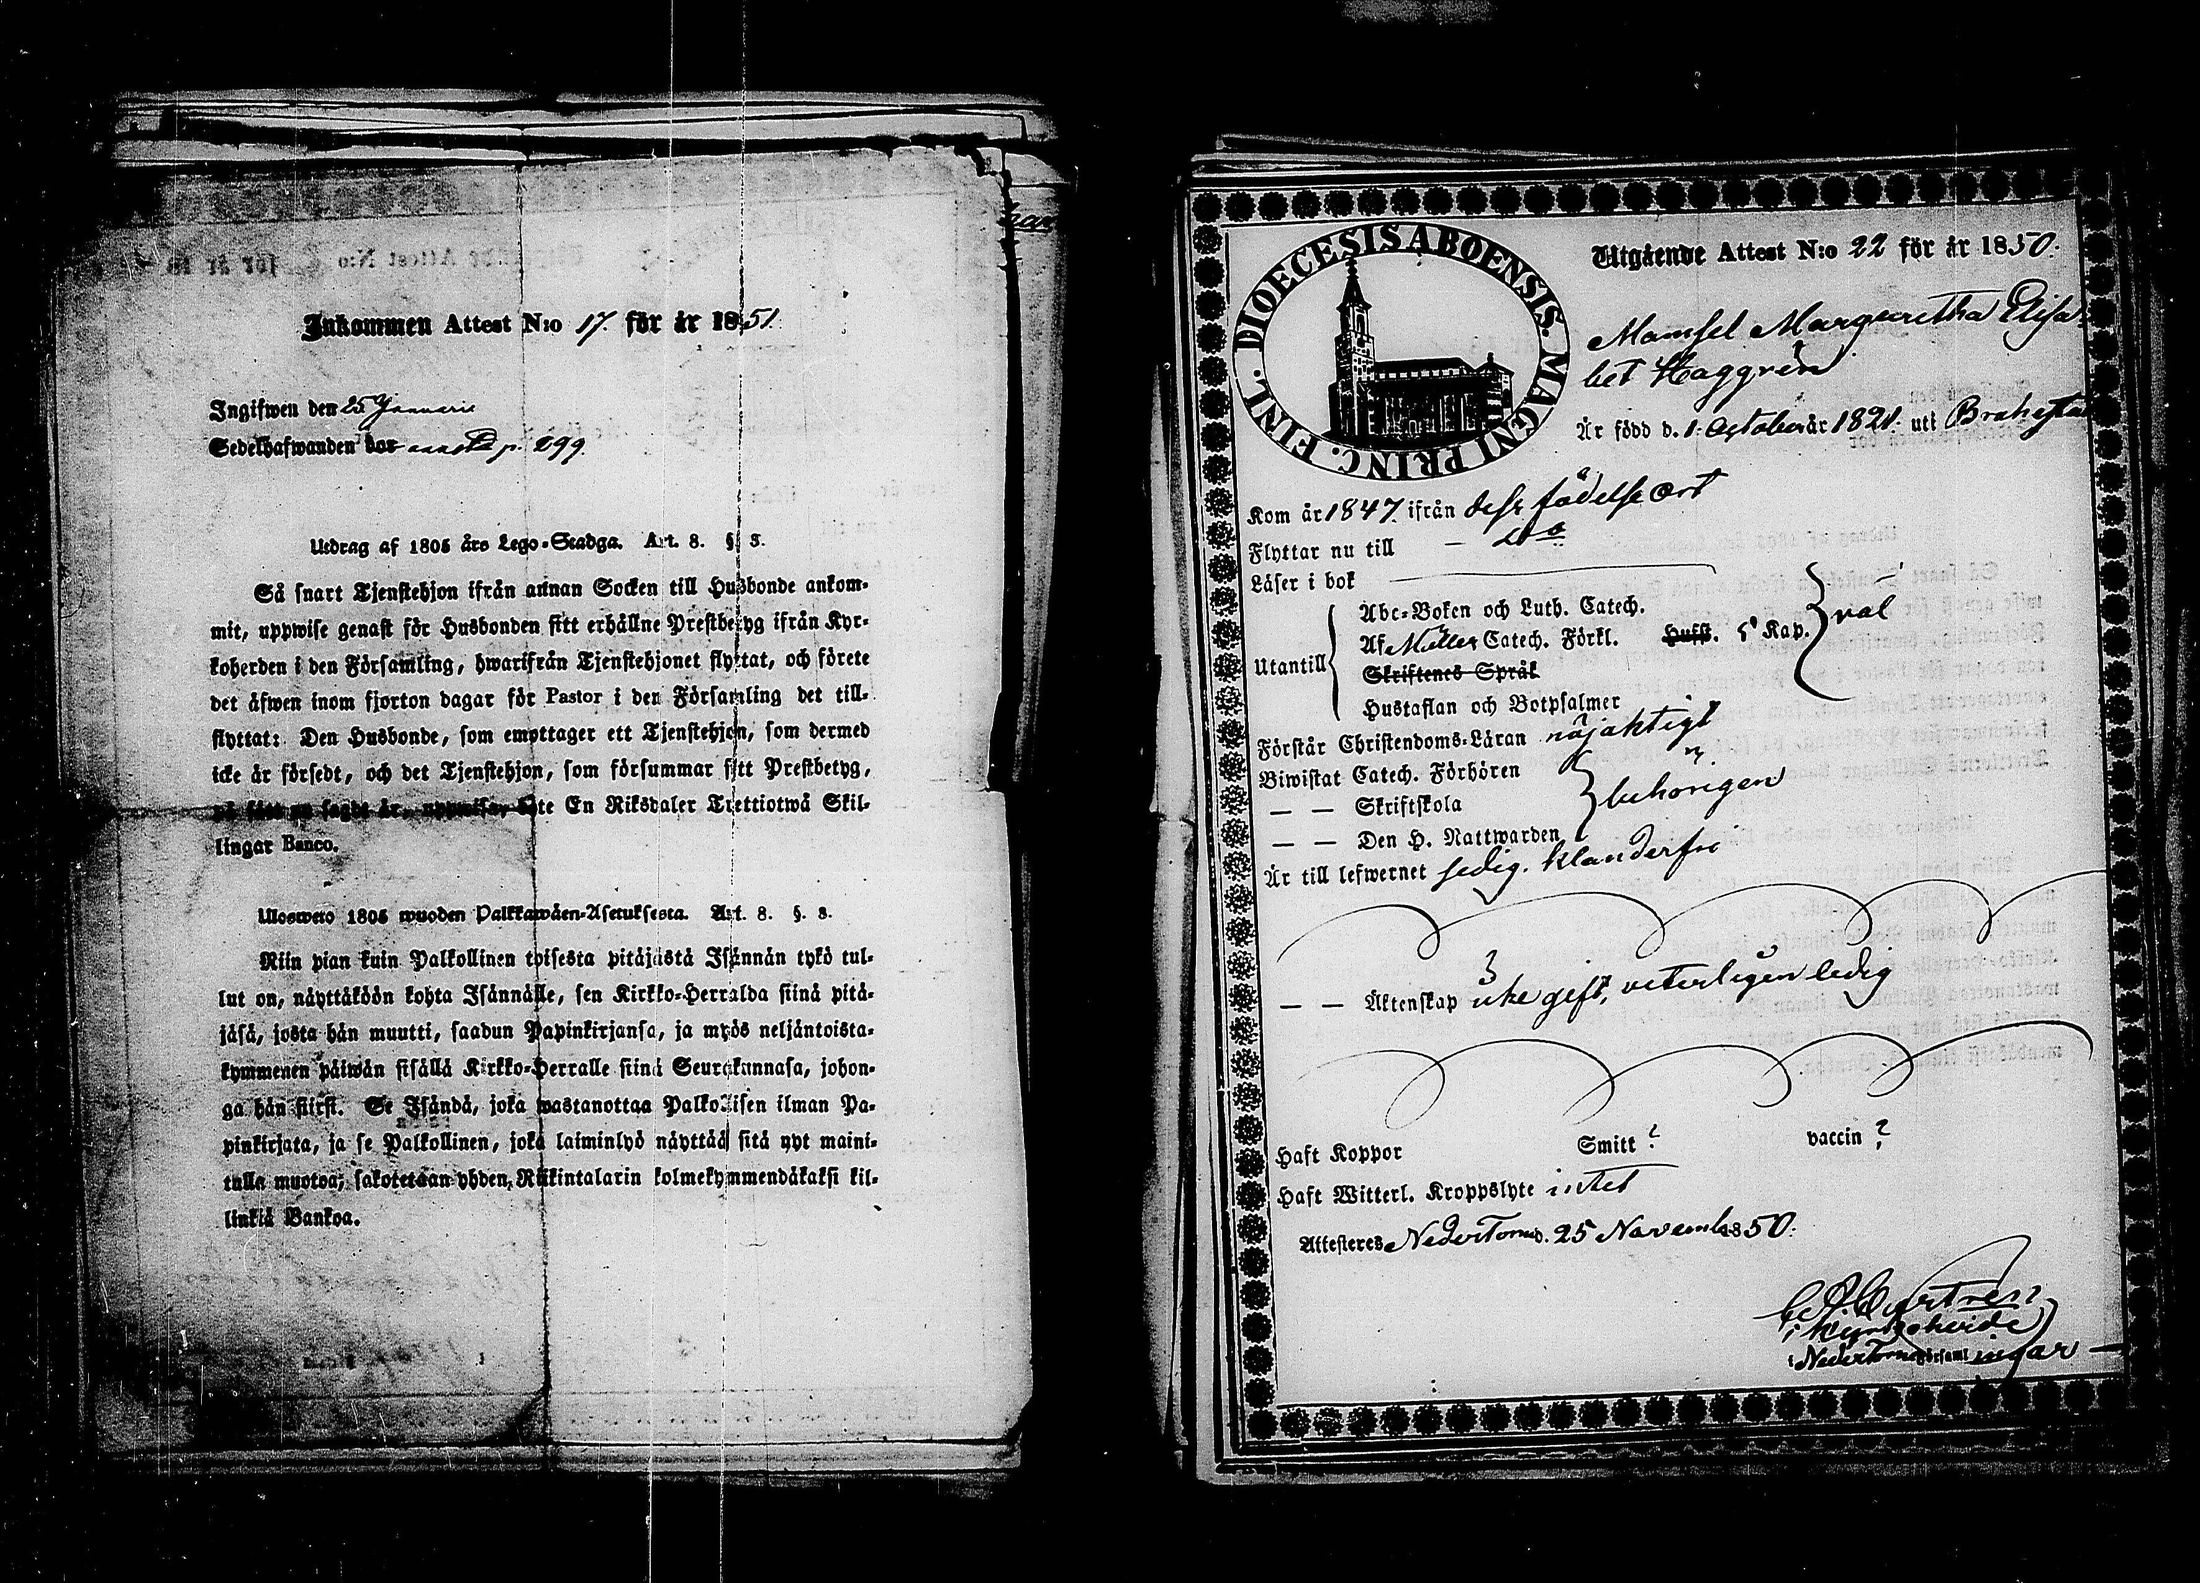 Inkommen Attest N:o 17. för år 1851.
Ingifwen den 25 Januarii
Sedelhafwanden bor p. 299.
Utdrag af 1805 års Lego-Stadga. Art. 8. §. 3.
Så snart Tjenstehjon ifrån annan Socken till Husbonde ankom-
mit, uppwise genast för Husbonden sitt erhållne Prestbetyg ifrån Kyr-
koherden i den Församling, hwarifrån Tjenstehjonet flyttat, och förete
det äfwen inom fjorton dagar för Pastor i den Församling det till-
flyttat: Den Husbonde, som emottager ett Tjenstehjon, som dermed
icke är försedt, och det Tjenstehjon, som försummar sitt Prestbetyg,
på sätt nu sagdt är, uppwisa, böte En Riksdaler Trettiotwå Skil-
lingar Banco.
Ulosweto 1805 wuoden Palkkawäen-Asetuksesta. Art. 8. §. 3.
Niin pian kuin Palkollinen toisesta pitäjästä Isännän tykö tul-
lut on, näyttäköön kohta Isännälle, sen Kirkko-Herralda siinä pitä-
jäsä, josta hän muutti, saadun Papinkirjansa, ja myös neljäntoista-
kymmenen päiwän sisällä Kirkko-Herralle siinä Seurakunnasa, johon-
ga hän siirsi. Se Isändä, joka wastanottaa Palkollisen ilman Pa-
pinkirjata, ja se Palkollinen, joka laiminlyö näyttää sitä nyt maini-
tulla muotoa, sakotetaan yhden Riikintalarin kolmekymmendäkaksi kil-
linkiä Bankoa.
DIOECESIS ABOENSIS. MAGNI PRINC. FINL.
Utgående Attest N:o 22 för år 1850.
Mamsel Margaretha Elisa-
bet Häggrén
Är född d. 1. October år 1821. uti Brahesta
Kom år 1847. ifrån dess födelse ort
Flyttar nu till — do
Läser i bok
Utantill
Abc-Boken och Luth. Catech.
Af Möller Catech. Förkl. Husft. 5 Kap.
väl
Skriftenes Språk
Hustaflan och Botpsalmer
Förstår Christendoms-Läran nöjaktigt
Biwistat Catech. Förhören
— — Skriftskola
behörigen
— — Den H. Nattwarden
Är till lefwernet sedig. klanderfri
— — Äktenskap icke gift, veterligen ledig
Haft Koppor Smitt ? vaccin ?
Haft Witterl. Kroppslyte intet
Attesteres Nedertorneå d. 25 November 1850.
i Nedertorneå Församlingar